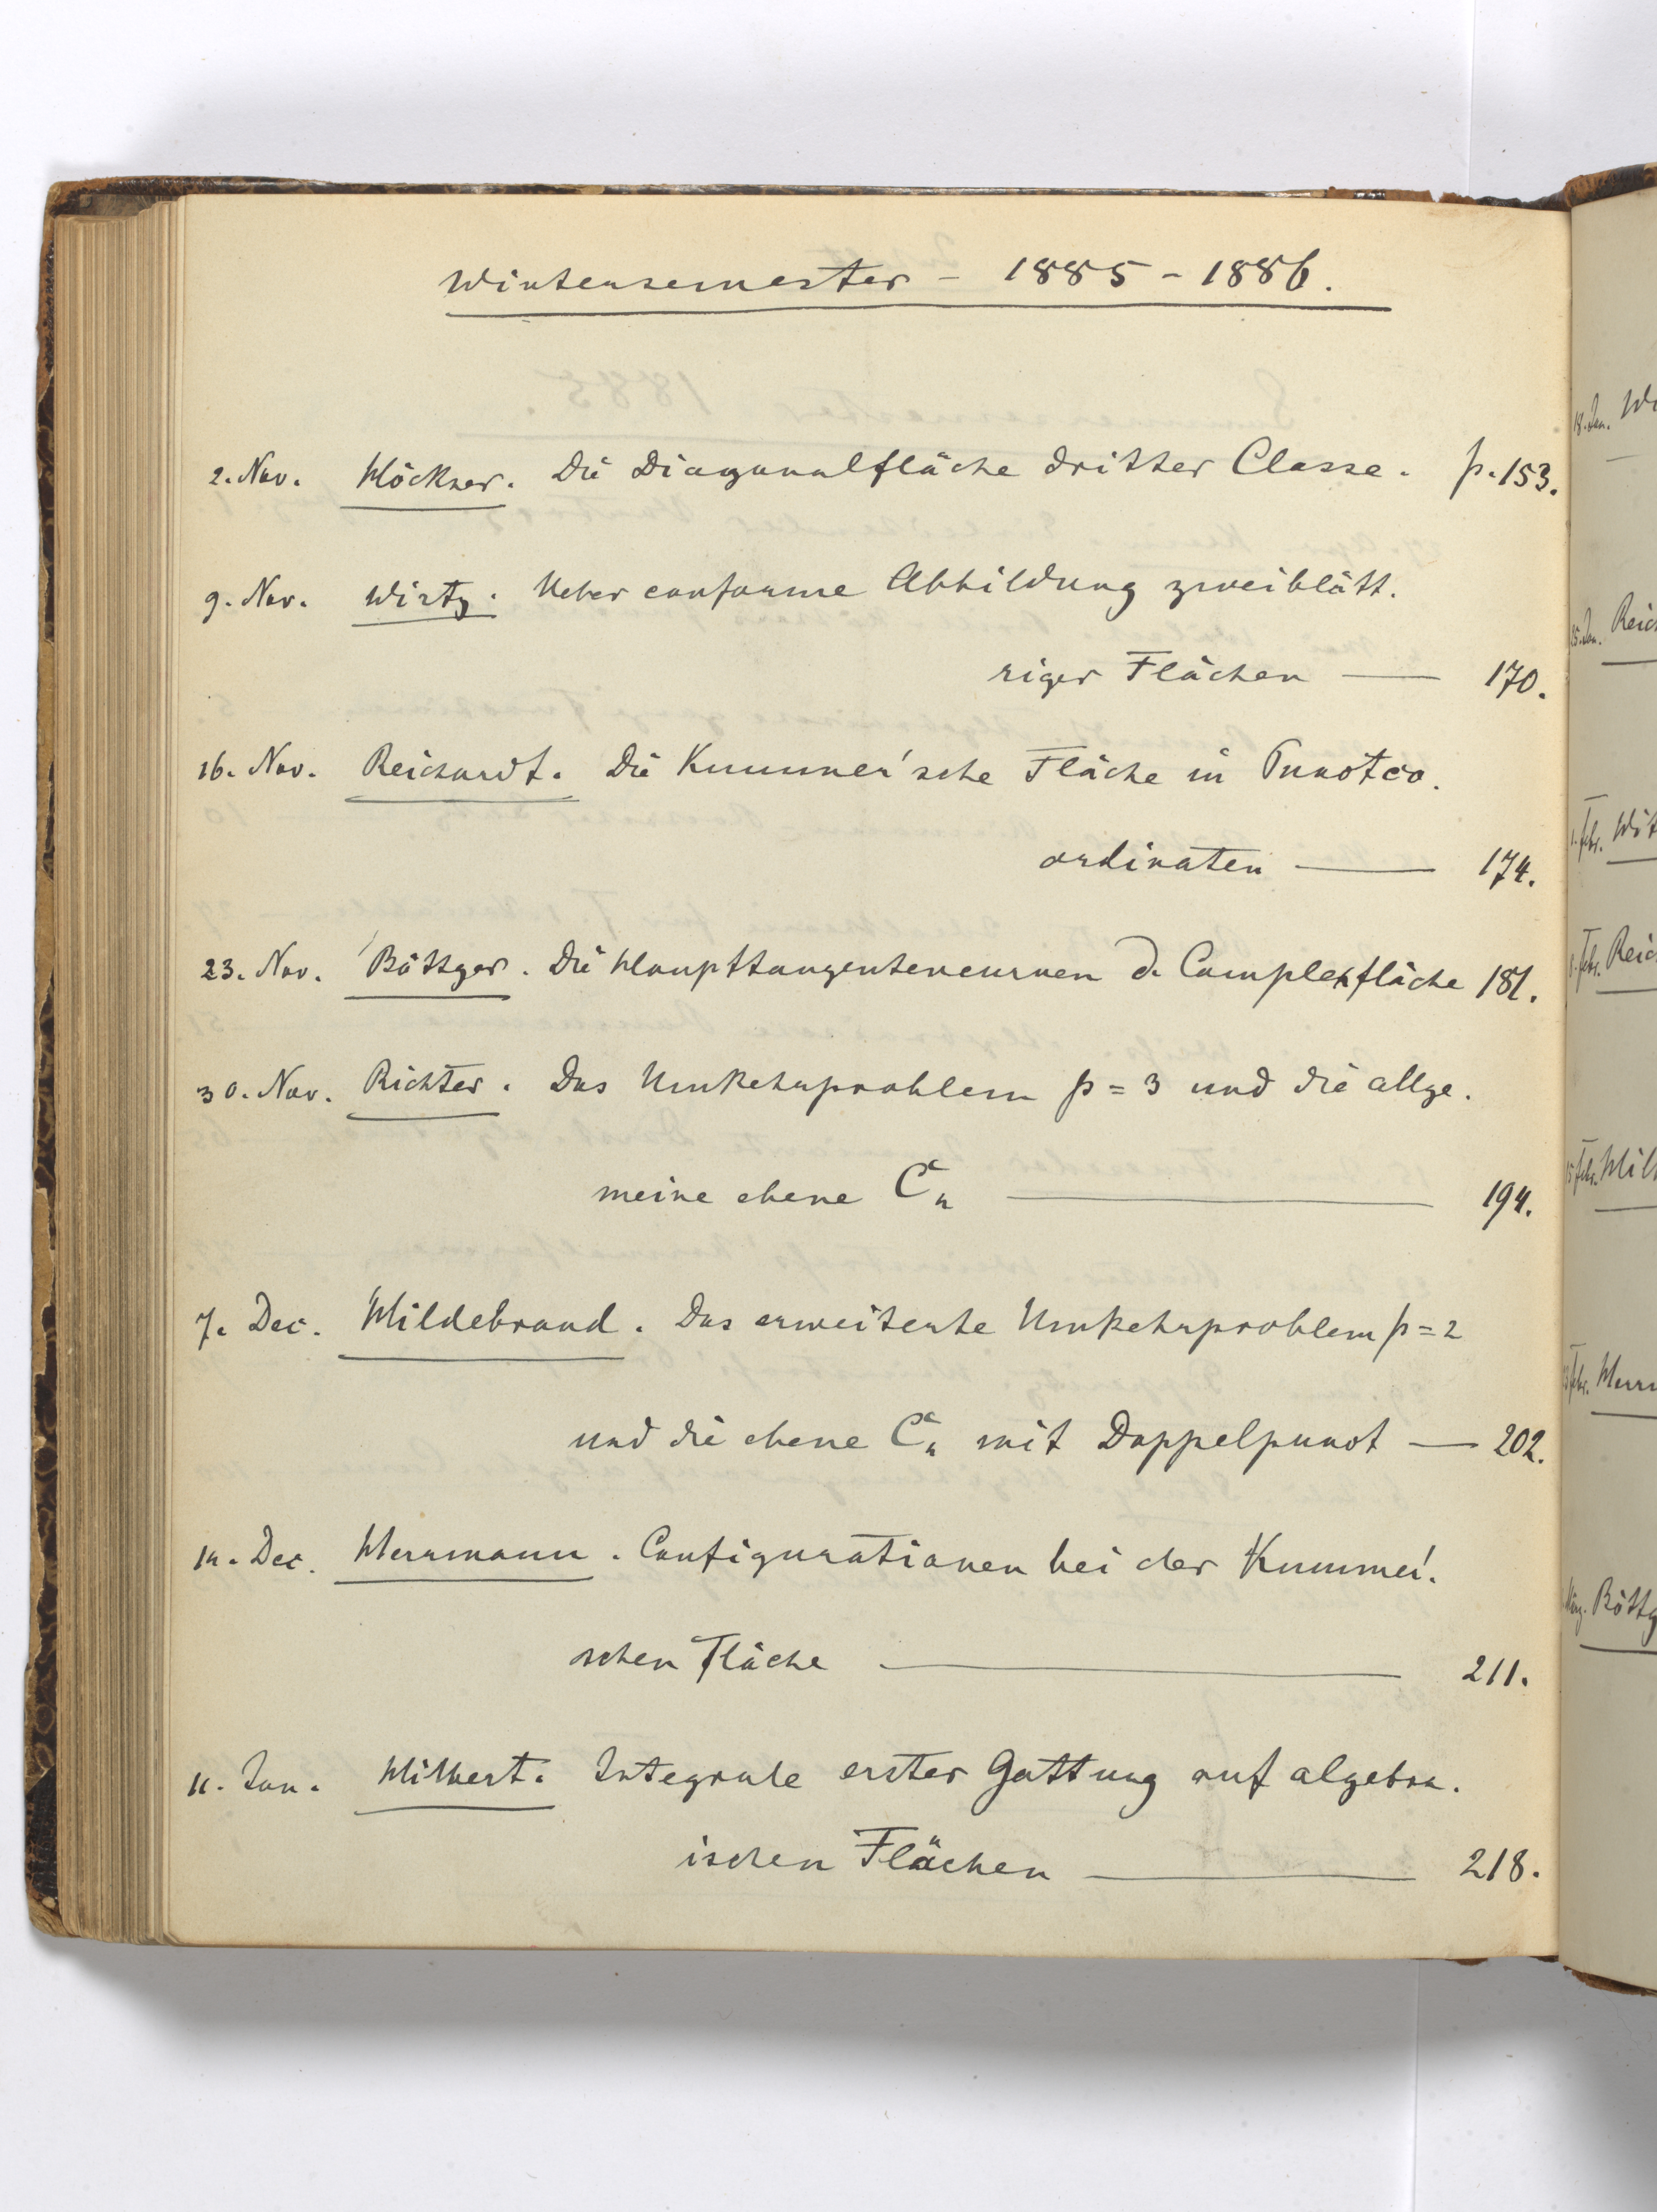 Wintersemester – 1885 – 1886.
2. Nov. Höckner. Die Diagonalfläche dritter Classe. p. 153.
9. Nov. Wirtz. Ueber conforme Abbildung zweiblätt.
riger Flächen — 170.
16. Nov. Reichardt. Die Kummer'sche Fläche in Punctco.
ordinaten — 174.
23. Nov. Böttger. Die Haupttangentencurven d. Complexfläche 181.
30. Nov. Richter. Das Umkehrproblem p = 3 und die allge.
meine ebene C₄ — 194.
7. Dec. Hildebrand. Das erweiterte Umkehrproblem p = 2
und die ebene C₄ mit Doppelpunct — 202.
14. Dec. Herrmann. Configurationen bei der Kummer'.
schen Fläche — 211.
11. Jan. Hilbert. Integrale erster Gattung auf algebra.
ischen Flächen — 218.